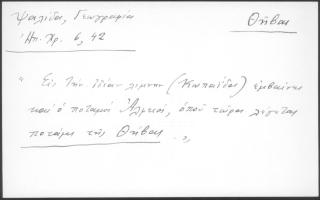 Ψαλίδα, Γεωγραφία
Θήβας
Ἠπ. Χρ. 6, 42
" Εἰς τὴν ἰδίαν λίμνην (Κωπαΐδα) ἐμβαίνει
καὶ ὁ ποταμὸς ὁποῦ τώρα λέγεται
ποτάμι τῆς Θήβας "